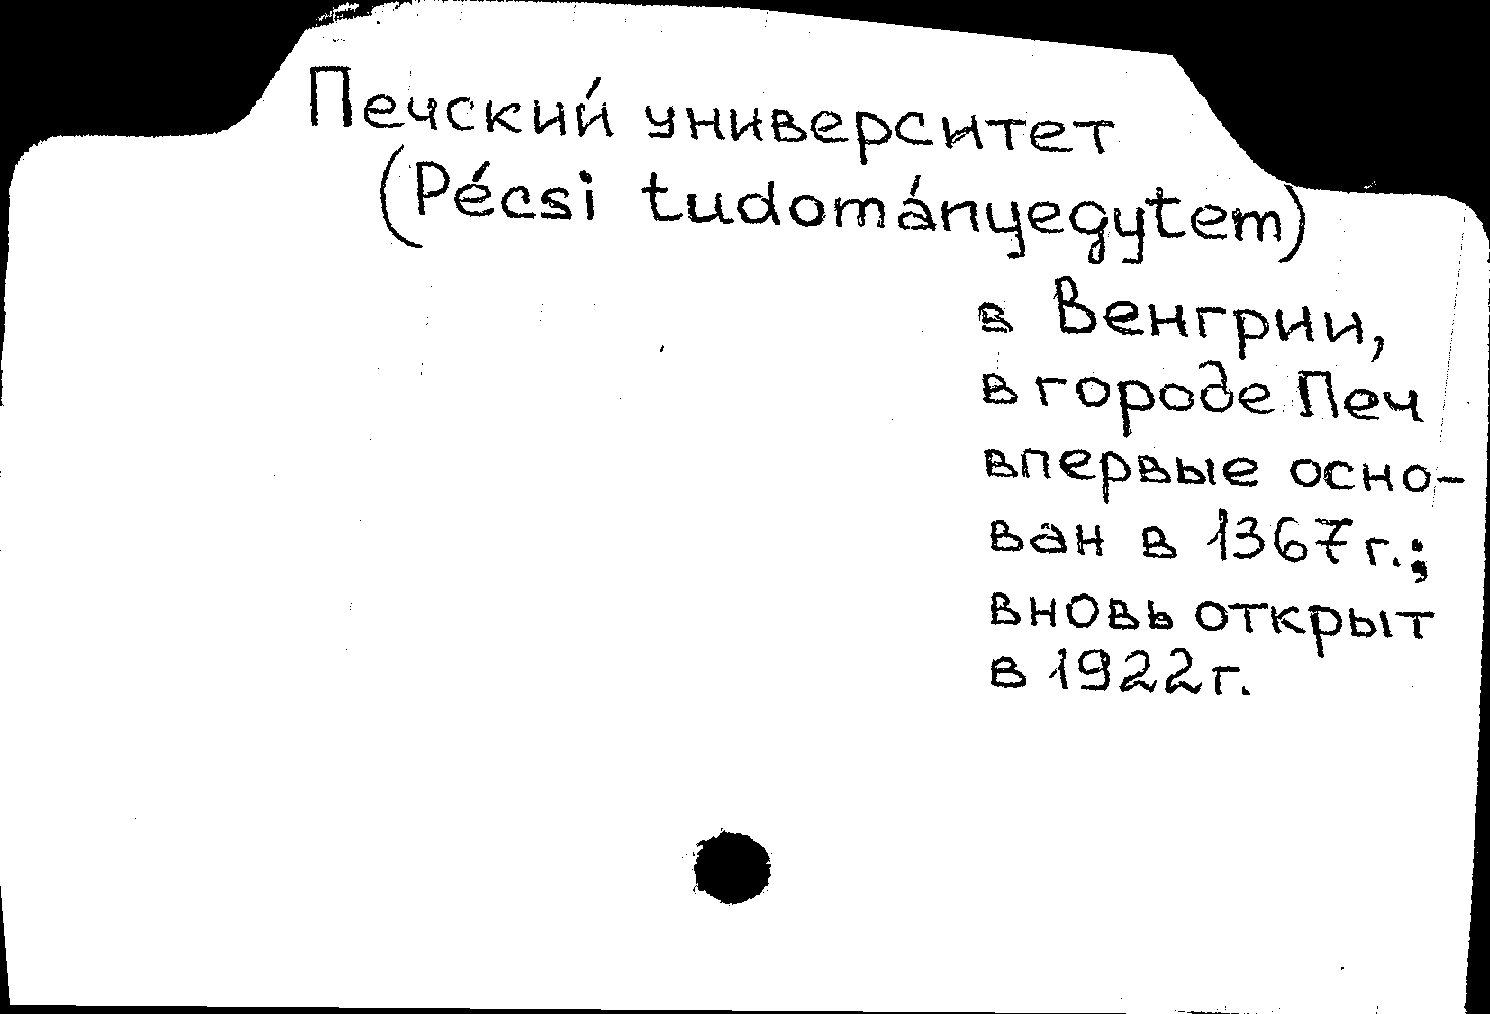 Печский университет
(Pécsi tudományegytem)
в Венгрии,
в городе Печ
впервые осно-
ван в 1367г.;
вновь открыт
в 1922г.